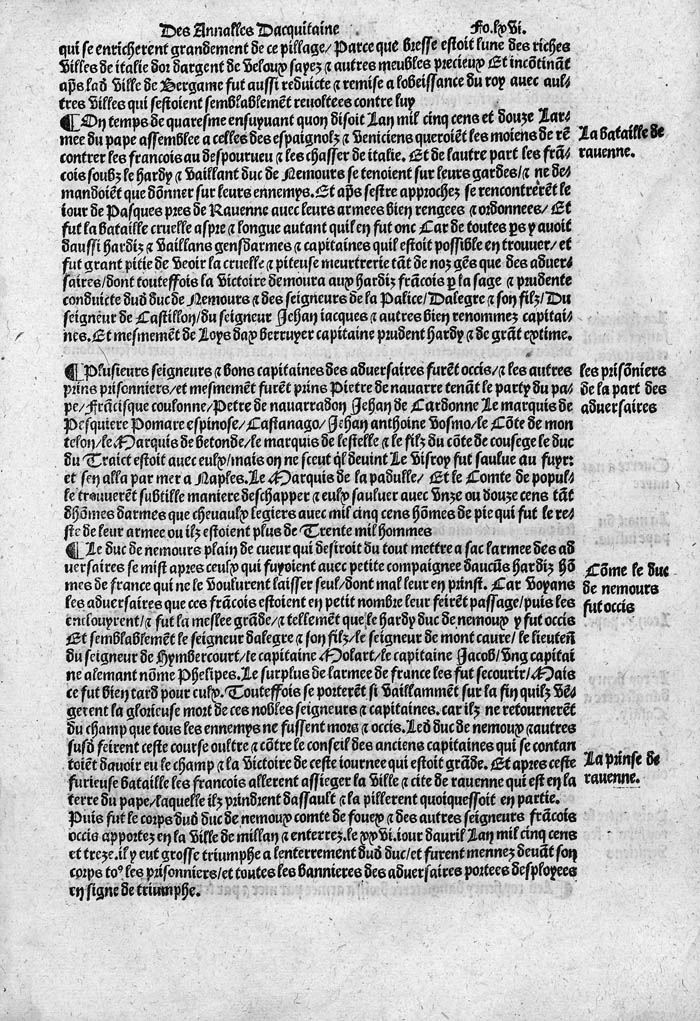 Des Annalles Dacquitaine Fo.lxvi.
qui se enricherent grandement de ce pillage/ Parce que bresse estoit lune des riches
villes de italie dor dargent de veloux sayez ⁊ autres meubles precieux Et incõtinãt
aps̃ lad ville de Bergame fut aussi reduicte ⁊ remise a lobeissance du roy avec aul⸗
tres villes qui sestoient semblablemẽt revoltees contre luy
¶ On temps de quaresme ensuyuant quon disoit Lan mil cinq cens et douze Lar⸗
mee du pape assemblee a celles des espaignolz ⁊ veniciens queroiẽt les moiens de rẽ
contrer les francois au despourueu ⁊ les chasser de italie. Et de lautre part les frã⸗
cois soubz le hardy ⁊ vaillant duc de Nemours se tenoient sur leurs gardes/⁊ ne de⸗
mandoiẽt que dõnner sur leurs ennemys. Et aps̃ sestre approchez se rencontrerẽt le
iour de Pasques pres de Rauenne avec leurs armees bien rengees ⁊ ordonnees/ Et
fut la bataille cruelle aspre ⁊ longue autant quil en fut onc Car de toutes ps y auoit
daussi hardiz ⁊ vaillans gensdarmes ⁊ capitaines quil estoit possible en trouuer/ et
fut grant pitie de veoir la cruelle ⁊ piteuse meurtrerie tãt de noz gẽs que des aduer⸗
saires/dont touteffois la victoire demoura aux hardiz frãcois p la sage ⁊ prudente
conduicte dud duc de Nemours ⁊ des seigneurs de la Palice/Dalegre ⁊ son filz/Du
seigneur de Castillon/du seigneur Jehan iacques ⁊ autres bien renommez capitai⸗
nes. Et mesmemẽt de Loys dax berruyer capitaine prudent hardy ⁊ de grãt extime.
La bataille de
rauenne.
¶ Plusieurs seigneurs ⁊ bons capitaines des aduersaires furẽt occis/⁊ les autres
prins prisonniers/et mesmemẽt furẽt prins Pietre de nauarre tenãt le party du pa⸗
pe/Frãcisque coulonne/Petre de nauarradon Jehan de Cardonne Le marquis de
Pesquiere Pomare espinose/ Castanago/ Jehan anthoine Vosmo/le Cõte de mon
telon/le Marquis de betonde/le marquis de lestelle ⁊ le filz du cõte de cousege le duc
du Traict estoit avec eulx/mais on ne sceut q̃l deuint Le visroy fut saulue au fuyr:
et sen alla par mer a Naples. Le Marquis de la padulle/ Et le Comte de popul⸗
le trouuerẽt subtille maniere deschapper ⁊ eulx sauluer avec vnze ou douze cens tãt
dhõmes darmes que cheuaulx legiers avec mil cinq cens hõmes de pie qui fut le re⸗
ste de leur armee ou ilz estoient plus de Trente mil hommes
les prisõniers
de la part des
aduersaires
¶ Le duc de nemours plain de cueur qui desiroit du tout mettre a sac larmee des ad
uersaires se mist apres ceulx qui fuyoient avec petite compaignee daucũs hardiz hõ
mes de france qui ne le voulurent laisser seul/dont mal leur en prinst. Car voyans
les aduersaires que ces frãcois estoient en petit nombre leur feirẽt passage/puis les
enclouyrent/⁊ fut la meslee grãde/⁊ tellemẽt que le hardy duc de nemoux y fut occis
Et semblablemẽt le seigneur dalegre ⁊ son filz/le seigneur de mont caure/ le lieuteñ
du seigneur de Hymbercourt/le capitaine Molart/le capitaine Jacob/vng capitai
ne alemant nõme Phelipes. Le surplus de larmee de france les fut secourir/Mais
ce fut bien tard pour eulx. Touteffois se porterẽt si vaillammẽt sur la fin quilz vẽ⸗
gerent la glorieuse mort de ces nobles seigneurs ⁊ capitaines. car ilz ne retournerẽt
du champ que tous les ennemys ne fussent mors ⁊ occis. Led duc de nemoux ⁊autres
susd feirent ceste course oultre ⁊ cõtre le conseil des anciens capitaines qui se contan
toiẽt dauoir eu le champ ⁊ la victoire de ceste iournee qui estoit grãde. Et apres ceste
furieuse bataille les francois allerent assieger la ville ⁊ cite de rauenne qui est en la
terre du pape/laquelle ilz prindrent dassault ⁊ la pillerent quoiquessoit en partie.
Cõme le duc
de nemours
fut occis
La prinse de
rauenne.
Puis fut le corps dud duc de nemoux comte de fouex ⁊ des autres seigneurs frãcois
occis apportez en la ville de millan ⁊ enterrez.le xxvi.iour dauril Lan mil cinq cens
et treze.il y eut grosse triumphe a lenterrement dud duc/et furent mennez deuãt son
corps toꝰ les prisonniers/et toutes les bannieres des aduersaires portees desployees
en signe de triumphe.